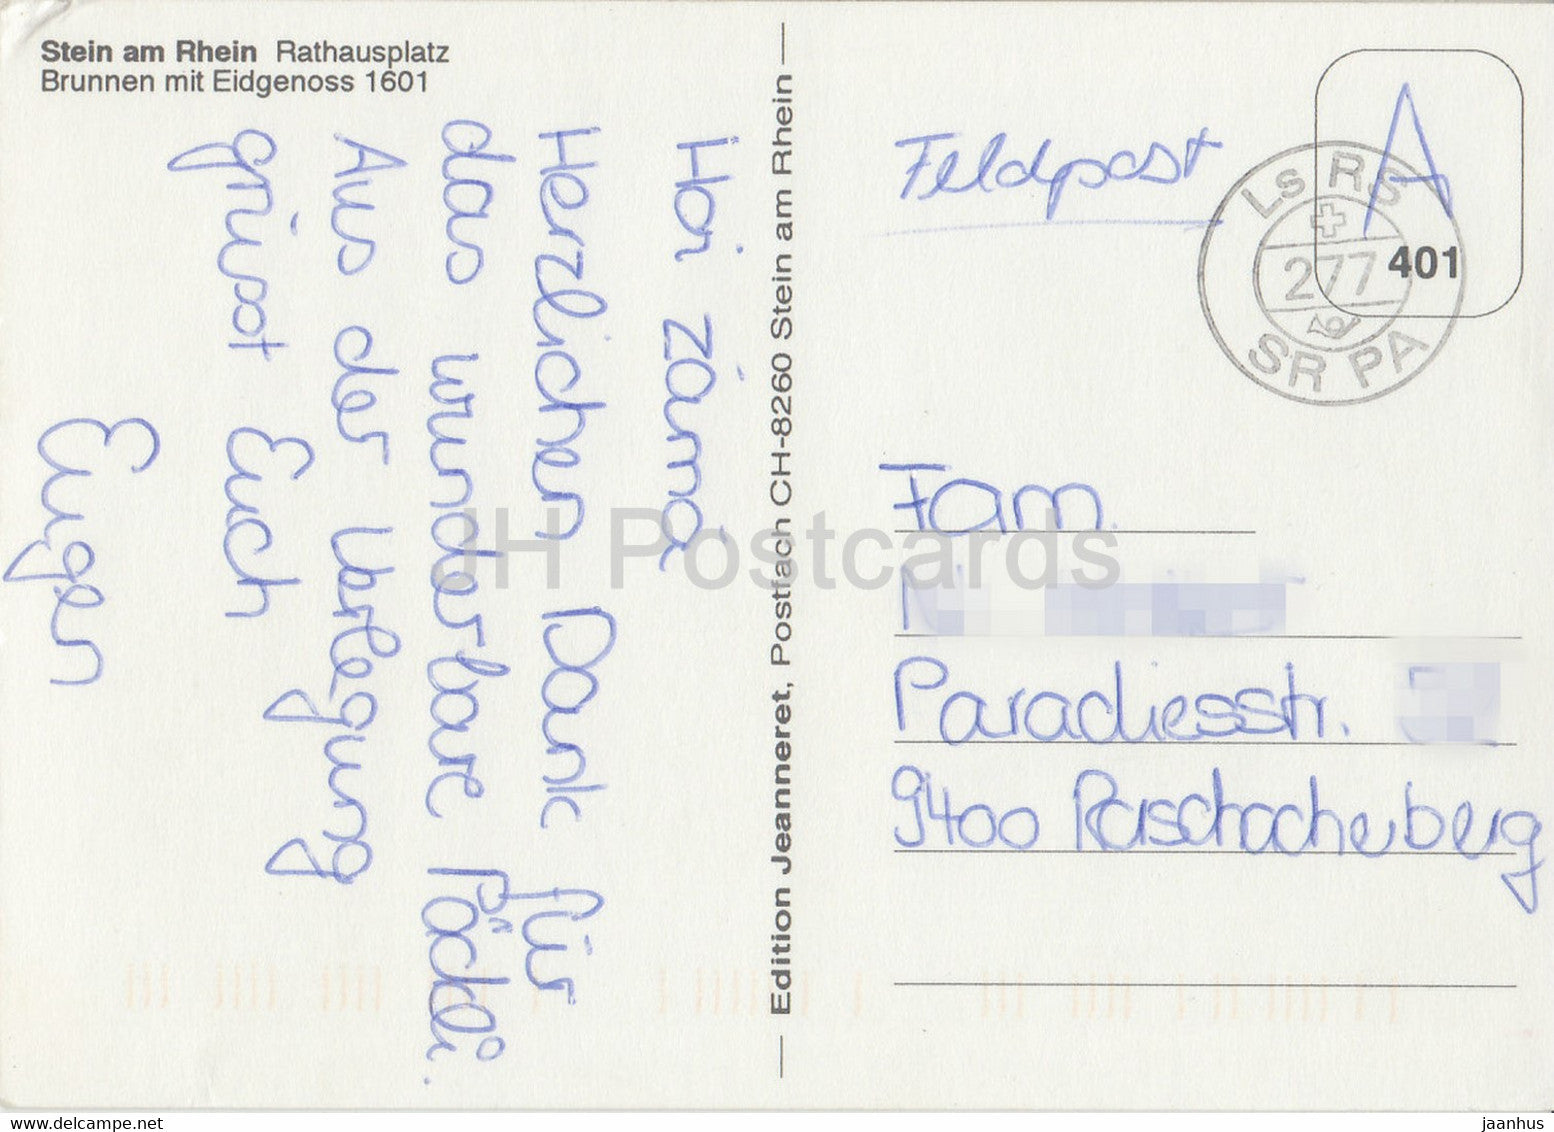 Stein am Rhein Rathausplatz
Brunnen mit Eidgenoss 1601
Hoi zämä
Herzlichen Dank für
das wunderbare Päckli.
Aus der Verlegung
grüsst Euch
Eugen
Edition Jeanneret, Postfach CH-8260 Stein am Rhein
Feldpost
A
401
Ls RS
277
SR PA
Fam.
Paradiesstr.
9400 Rorschacherberg
JH Postcards
jaanhus